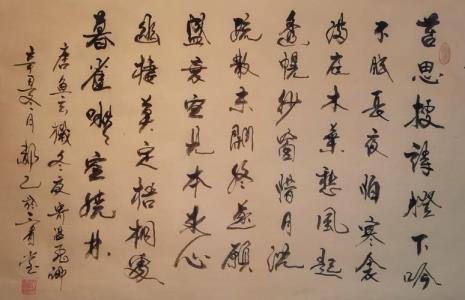 苦思搜詩燈下吟
不眠長夜怕寒衾
滿庭木葉愁風起
透幌紗窗惜月沉
疏散未閑終遂願
盛衰空見本來心
幽棲莫定梧桐處
暮雀啾啾空繞林
唐魚玄機冬夜寄溫飛卿
辛丑冬月